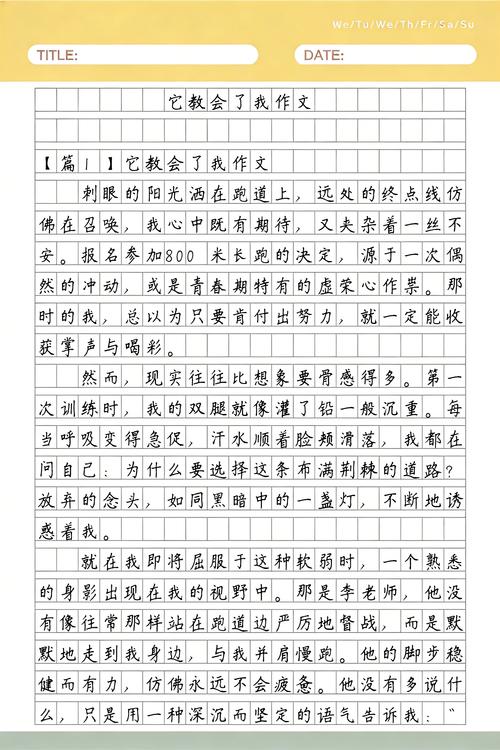 We/Tu/We/Th/Fr/Sa/Su
TITLE:
DATE:
它教会了我作文
【篇1】它教会了我作文
刺眼的阳光洒在跑道上，远处的终点线仿
佛在召唤，我心中既有期待，又夹杂着一丝不
安。报名参加800 米长跑的决定，源于一次偶
然的冲动，或是青春期特有的虚荣心作祟。那
时的我，总以为只要肯付出努力，就一定能收
获掌声与喝彩。
然而，现实往往比想象要骨感得多。第一
次训练时，我的双腿就像灌了铅一般沉重。每
当呼吸变得急促，汗水顺着脸颊滑落，我都在
问自己：为什么要选择这条布满荆棘的道路？
放弃的念头，如同黑暗中的一盏灯，不断地诱
惑着我。
就在我即将屈服于这种软弱时，一个熟悉
的身影出现在我的视野中。那是李老师，他没
有像往常那样站在跑道边严厉地督战，而是默
默地走到我身边，与我并肩慢跑。他的脚步稳
健而有力，仿佛永远不会疲惫。他没有多说什
么，只是用一种深沉而坚定的语气告诉我：“